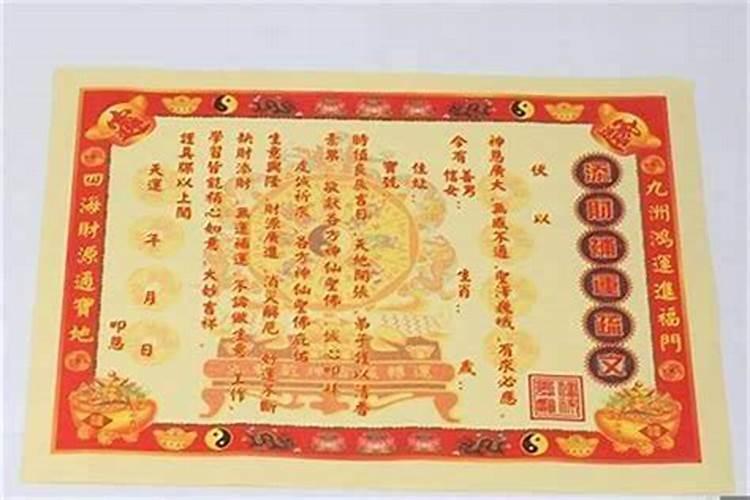 九洲鴻運進福門
添財補運疏文
伏以
神恩廣大 無感不通 聖澤巍峨 有求必應
今有 善男 信女 ： 生肖： 歲：
住址：
寶號
時值良辰吉日 天地開張 弟子謹以清香
素果 敬獻各方神仙聖佛 誠心叩拜
虔誠祈求 各方神仙聖佛庇佑
生意興隆 財源廣進 消災解厄 好運不斷
缺財添財 無運補運 不論做生意 工作、
學習皆能稱心如意 大妙吉祥
謹具疏以上聞
天運 年 月 日
叩恩
四海財源通寶地